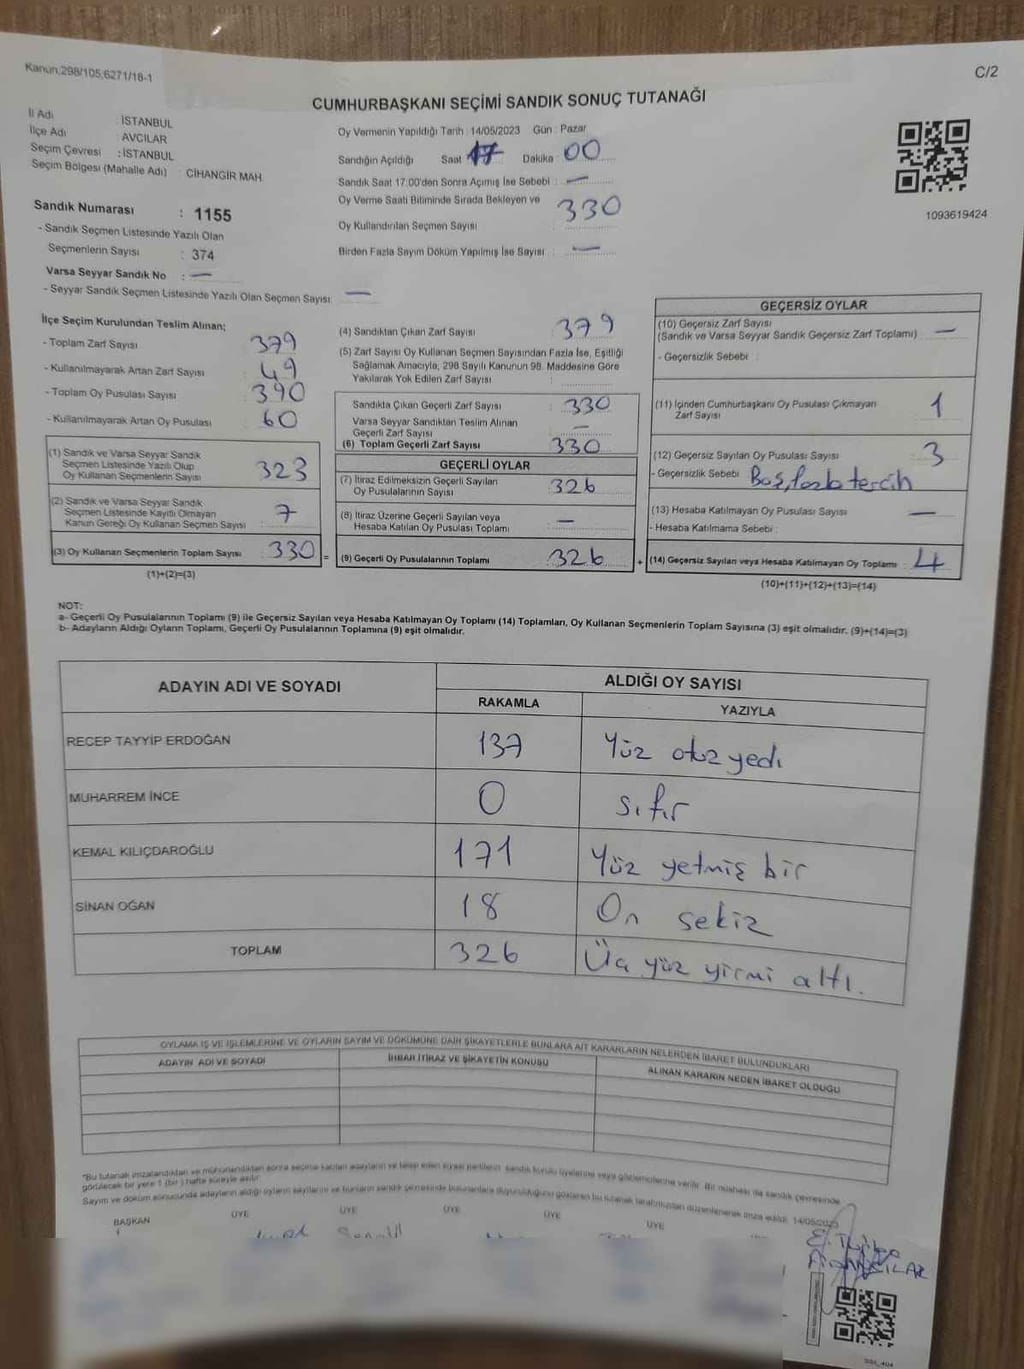 Kanun;298/105;6271/18-1
C/2
CUMHURBAŞKANI SEÇİMİ SANDIK SONUÇ TUTANAĞI
İl Adı : İSTANBUL
İlçe Adı : AVCILAR
Seçim Çevresi : İSTANBUL
Seçim Bölgesi (Mahalle Adı) : CİHANGİR MAH.
Sandık Numarası : 1155
- Sandık Seçmen Listesinde Yazılı Olan
Seçmenlerin Sayısı : 374
Varsa Seyyar Sandık No : —
- Seyyar Sandık Seçmen Listesinde Yazılı Olan Seçmen Sayısı: —
Oy Vermenin Yapıldığı Tarih : 14/05/2023 Gün : Pazar
Sandığın Açıldığı Saat 17 Dakika : 00
Sandık Saat 17:00'den Sonra Açımış İse Sebebi : —
Oy Verme Saati Bitiminde Sırada Bekleyen ve
Oy Kullandırılan Seçmen Sayısı : 330
Birden Fazla Sayım Döküm Yapılmış İse Sayısı : —
1093619424
İlçe Seçim Kurulundan Teslim Alınan;
- Toplam Zarf Sayısı : 379
- Kullanılmayarak Artan Zarf Sayısı : 49
- Toplam Oy Pusulası Sayısı : 390
- Kullanılmayarak Artan Oy Pusulası : 60
(1) Sandık ve Varsa Seyyar Sandık
Seçmen Listesinde Yazılı Olup
Oy Kullanan Seçmenlerin Sayısı : 323
(2) Sandık ve Varsa Seyyar Sandık
Seçmen Listesinde Kayıtlı Olmayan
Kanun Gereği Oy Kullanan Seçmen Sayısı : 7
(3) Oy Kullanan Seçmenlerin Toplam Sayısı : 330 =
(1)+(2)=(3)
(4) Sandıktan Çıkan Zarf Sayısı : 379
(5) Zarf Sayısı Oy Kullanan Seçmen Sayısından Fazla İse, Eşitliği
Sağlamak Amacıyla, 298 Sayılı Kanunun 98. Maddesine Göre
Yakılarak Yok Edilen Zarf Sayısı :
Sandıkta Çıkan Geçerli Zarf Sayısı : 330
Varsa Seyyar Sandıktan Teslim Alınan
Geçerli Zarf Sayısı : —
(6) Toplam Geçerli Zarf Sayısı : 330
GEÇERLİ OYLAR
(7) İtiraz Edilmeksizin Geçerli Sayılan
Oy Pusulalarının Sayısı : 326
(8) İtiraz Üzerine Geçerli Sayılan veya
Hesaba Katılan Oy Pusulası Toplamı : —
(9) Geçerli Oy Pusulalarının Toplamı : 326 +
GEÇERSİZ OYLAR
(10) Geçersiz Zarf Sayısı
(Sandık ve Varsa Seyyar Sandık Geçersiz Zarf Toplamı) : —
- Geçersizlik Sebebi :
(11) İçinden Cumhurbaşkanı Oy Pusulası Çıkmayan
Zarf Sayısı : 1
(12) Geçersiz Sayılan Oy Pusulası Sayısı : 3
- Geçersizlik Sebebi : Boş, fazla tercih
(13) Hesaba Katılmayan Oy Pusulası Sayısı : —
- Hesaba Katılmama Sebebi :
(14) Geçersiz Sayılan veya Hesaba Katılmayan Oy Toplamı : 4
(10)+(11)+(12)+(13)=(14)
NOT:
a- Geçerli Oy Pusulalarının Toplamı (9) ile Geçersiz Sayılan veya Hesaba Katılmayan Oy Toplamı (14) Toplamları, Oy Kullanan Seçmenlerin Toplam Sayısına (3) eşit olmalıdır. (9)+(14)=(3)
b- Adayların Aldığı Oyların Toplamı, Geçerli Oy Pusulalarının Toplamına (9) eşit olmalıdır.
ADAYIN ADI VE SOYADI
ALDIĞI OY SAYISI
RAKAMLA YAZIYLA
RECEP TAYYİP ERDOĞAN 137 Yüz otuz yedi
MUHARREM İNCE 0 sıfır
KEMAL KILIÇDAROĞLU 171 Yüz yetmiş bir
SİNAN OĞAN 18 On sekiz
TOPLAM 326 Üç yüz yirmi altı.
OYLAMA İŞ VE İŞLEMLERİNE VE OYLARIN SAYIM VE DÖKÜMÜNE DAİR ŞİKAYETLERLE BUNLARA AİT KARARLARIN NELERDEN İBARET BULUNDUKLARI
ADAYIN ADI VE SOYADI İHBAR İTİRAZ VE ŞİKAYETİN KONUSU ALINAN KARARIN NEDEN İBARET OLDUĞU
*Bu tutanak imzalandıktan ve mühürlendikten sonra seçime katılan adayların ve talep eden siyasi partilerin sandık kurulu üyelerine veya gözlemcilerine verilir. Bir nüshası da sandık çevresinde
görülecek bir yere 1 (bir) hafta süreyle asılır.
Sayım ve döküm sonucunda adayların aldığı oyların sayılarını ve bunların sandık çevresinde bulunanlara duyurulduğunu gösteren bu tutanak tarafımızdan düzenlenerek imza edildi. 14/05/2023
BAŞKAN ÜYE ÜYE ÜYE ÜYE ÜYE